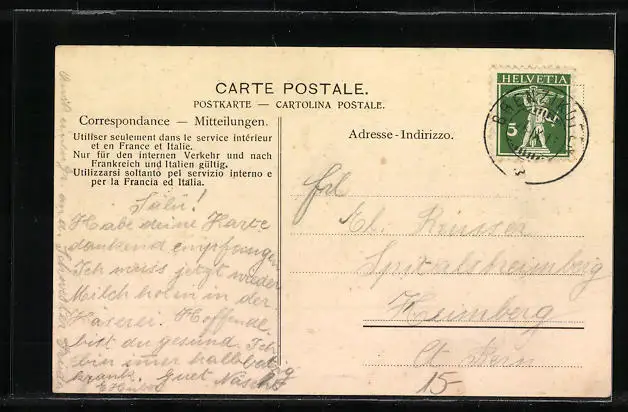 CARTE POSTALE.
POSTKARTE — CARTOLINA POSTALE.
Correspondance — Mitteilungen.
Utiliser seulement dans le service intérieur
et en France et Italie.
Nur für den internen Verkehr und nach
Frankreich und Italien gültig.
Utilizzarsi soltanto pel servizio interno e
per la Francia ed Italia.
Salü!
Habe deine Karte
dankend empfangen
Ich muss jetzt wieder
Milch holen in der
Käserei. Hoffende
bist du gesund. Ich
bin imer halb
krank. Guet Nacht
HELVETIA
5
Adresse - Indirizzo.
Frl
El.
Heimberg
Ct Bern
15-